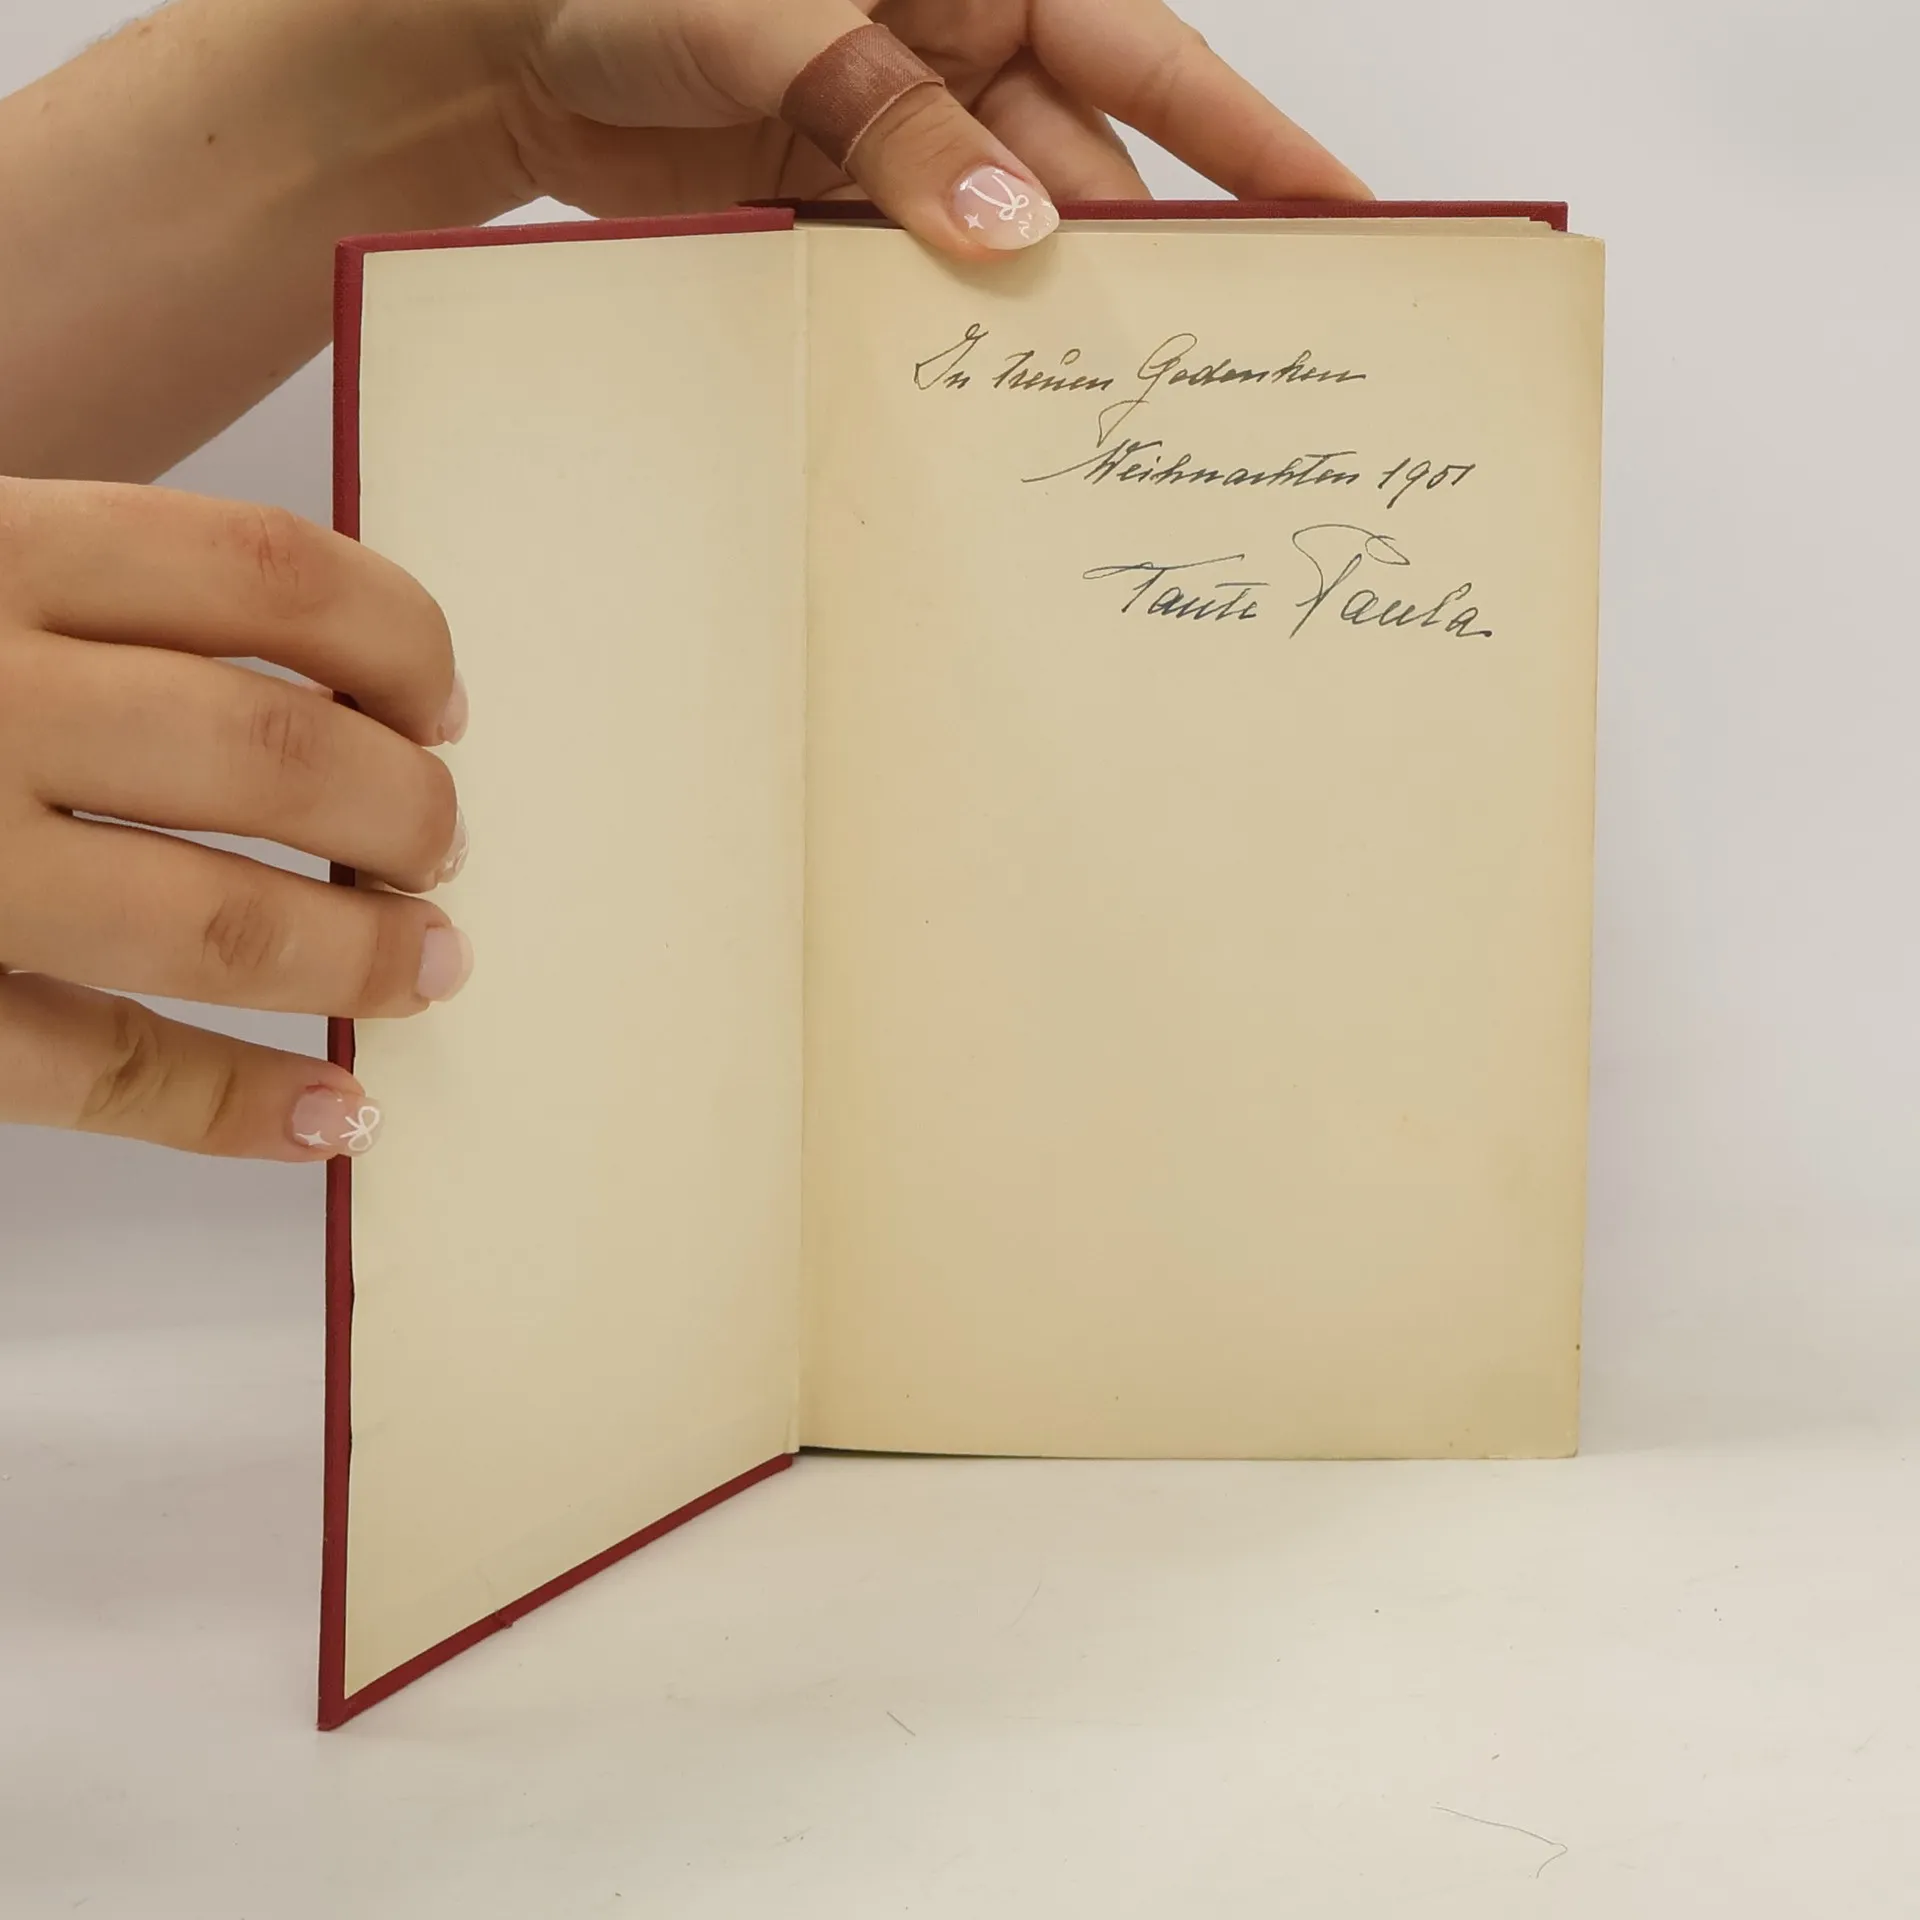 In treuen Gedenken
Weihnachten 1951
Tante Paula